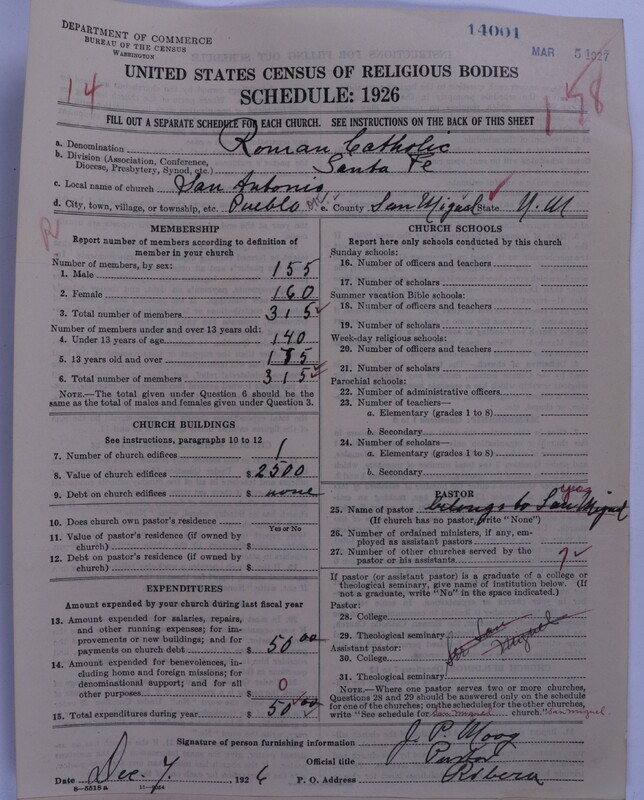 DEPARTMENT OF COMMERCE
BUREAU OF THE CENSUS
WASHINGTON
14001
MAR 5 1927
UNITED STATES CENSUS OF RELIGIOUS BODIES
SCHEDULE: 1926
14
1 78
FILL OUT A SEPARATE SCHEDULE FOR EACH CHURCH. SEE INSTRUCTIONS ON THE BACK OF THIS SHEET
a. Denomination Roman Catholic
b. Division (Association, Conference, Diocese, Presbytery, Synod, etc.) Santa Fe
c. Local name of church San Antonio
d. City, town, village, or township, etc. Pueblo e. County San Miguel State N. M
R
MEMBERSHIP
Report number of members according to definition of member in your church
Number of members, by sex:
1. Male 155
2. Female 160
3. Total number of members 315
Number of members under and over 13 years old:
4. Under 13 years of age 140
5. 13 years old and over 175
6. Total number of members 315
NOTE.—The total given under Question 6 should be the same as the total of males and females given under Question 3.
CHURCH BUILDINGS
See instructions, paragraphs 10 to 12
7. Number of church edifices 1
8. Value of church edifices $ 2500
9. Debt on church edifices $ none
10. Does church own pastor's residence
Yes or No
11. Value of pastor's residence (if owned by church) $
12. Debt on pastor's residence (if owned by church) $
EXPENDITURES
Amount expended by your church during last fiscal year
13. Amount expended for salaries, repairs, and other running expenses; for improvements or new buildings; and for payments on church debt $ 50 00
14. Amount expended for benevolences, including home and foreign missions; for denominational support; and for all other purposes $ 0
15. Total expenditures during year $ 50 00
CHURCH SCHOOLS
Report here only schools conducted by this church
Sunday schools:
16. Number of officers and teachers
17. Number of scholars
Summer vacation Bible schools:
18. Number of officers and teachers
19. Number of scholars
Week-day religious schools:
20. Number of officers and teachers
21. Number of scholars
Parochial schools:
22. Number of administrative officers
23. Number of teachers—
a. Elementary (grades 1 to 8)
b. Secondary
24. Number of scholars—
a. Elementary (grades 1 to 8)
b. Secondary
PASTOR
yes
25. Name of pastor belongs to San Miguel
(If church has no pastor, write "None")
26. Number of ordained ministers, if any, employed as assistant pastors
27. Number of other churches served by the pastor or his assistants 7
If pastor (or assistant pastor) is a graduate of a college or theological seminary, give name of institution below. (If not a graduate, write "No" in the space indicated.)
Pastor:
28. College
29. Theological seminary
See San Miguel
Assistant pastor:
30. College
31. Theological seminary
NOTE.—Where one pastor serves two or more churches, Questions 28 and 29 should be answered only on the schedule for one of the churches; on the schedules for the other churches, write "See schedule for San Miguel church." San Miguel
Signature of person furnishing information J. P. Moog
Official title Pastor
Date Dec. 7 1926 P. O. Address Ribera
8—5518a 11—9164